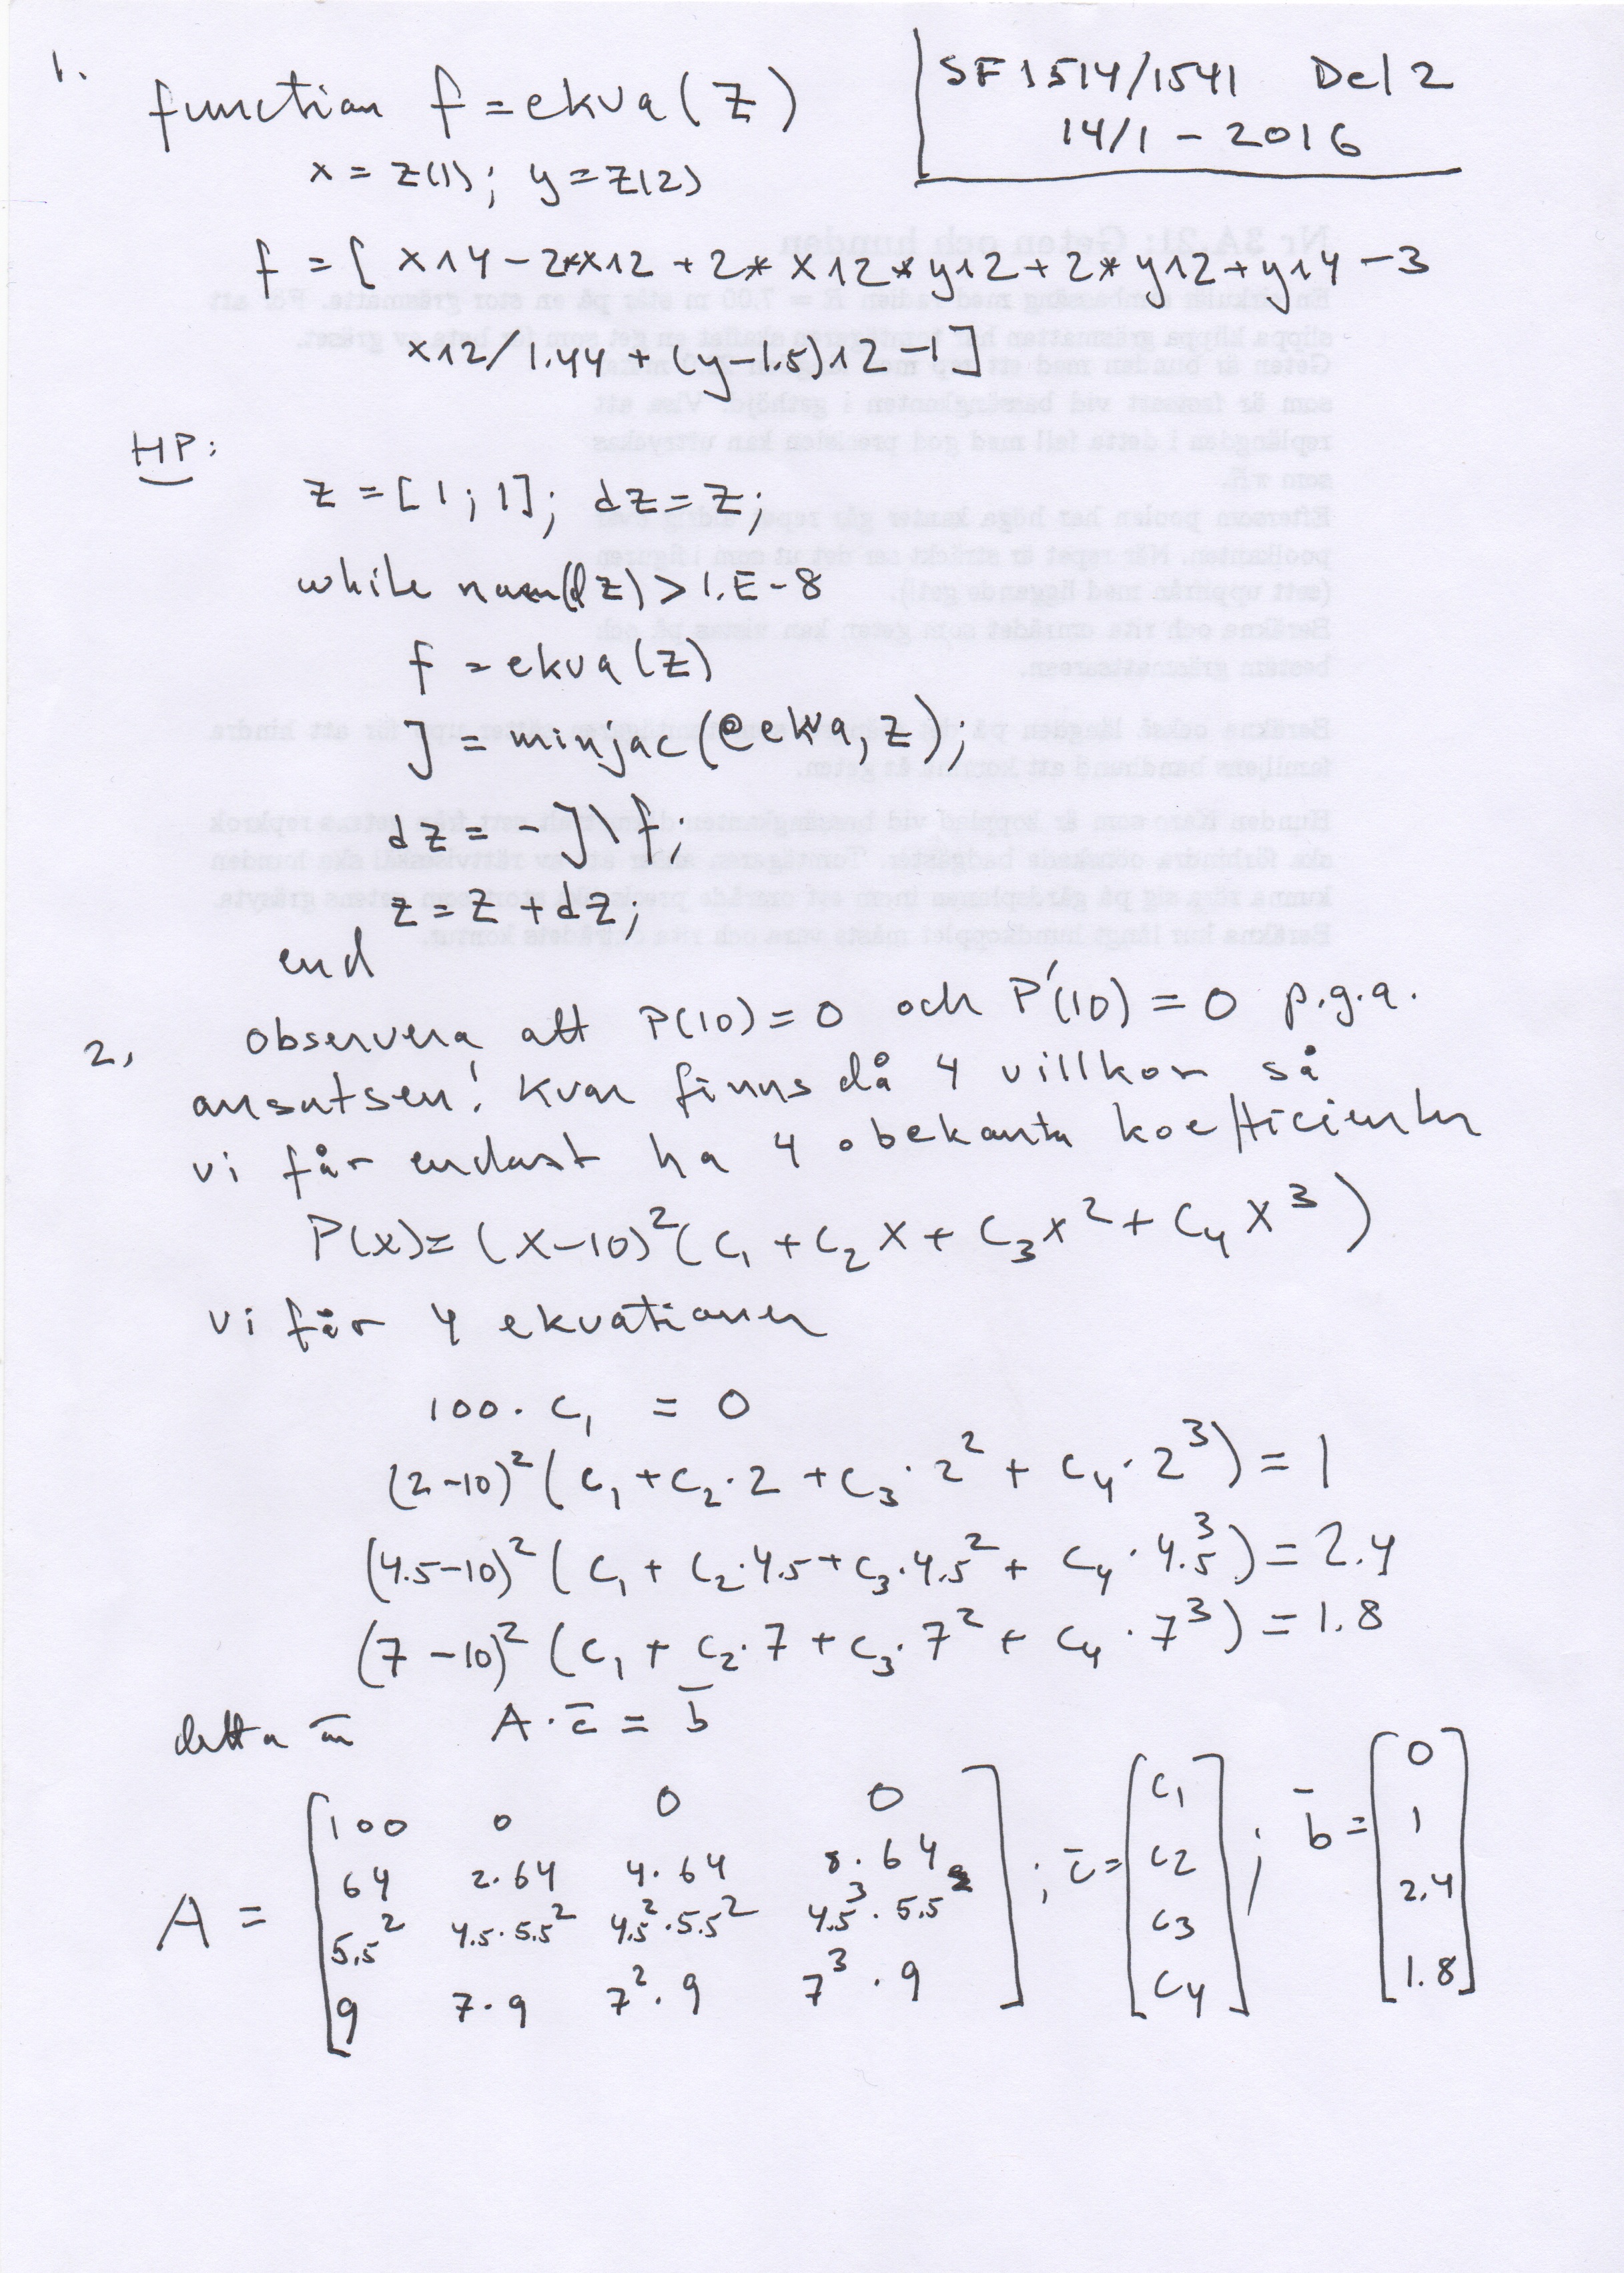 1.
function f = ekva(z)
SF1514/1541 Del 2
14/1 - 2016
x = z(1); y = z(2)
f = [ x^4 - 2*x^2 + 2*x^2*y^2 + 2*y^2 + y^4 - 3
x^2/1.44 + (y-1.5)^2 - 1 ]
HP:
z = [1; 1]; dz = z;
while norm(dz) > 1.E-8
f = ekva(z)
J = minjac(@ekva, z);
dz = - J\f;
z = z + dz;
end
2, observera att P(10) = 0 och P'(10) = 0 p.g.a.
ansatsen! Kvar finns då 4 villkor så
vi får endast ha 4 obekanta koefficienter
P(x) = (x-10)² (c₁ + c₂ x + c₃ x² + c₄ x³)
vi får 4 ekvationer
100 · c₁ = 0
(2-10)² (c₁ + c₂·2 + c₃·2² + c₄·2³) = 1
(4.5-10)² (c₁ + c₂·4.5 + c₃·4.5² + c₄·4.5³) = 2.4
(7-10)² (c₁ + c₂·7 + c₃·7² + c₄·7³) = 1.8
detta är A·c̄ = b̄
A = [ 100 0 0 0
64 2·64 4·64 8·64
5.5² 4.5·5.5² 4.5²·5.5² 4.5³·5.5²
9 7·9 7²·9 7³·9 ] ; c̄ = [ c1 c2 c3 c4 ] ; b̄ = [ 0 1 2.4 1.8 ]